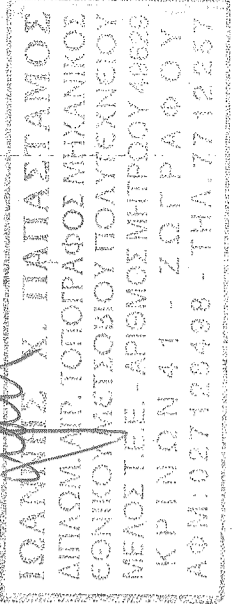 ΙΩΑΝΝΗΣ Χ. ΠΑΠΑΣΤΑΜΟΣ
ΔΙΠΛΩΜ. ΑΓΡ. ΤΟΠΟΓΡΑΦΟΣ ΜΗΧΑΝΙΚΟΣ
ΕΘΝΙΚΟΥ ΜΕΤΣΟΒΙΟΥ ΠΟΛΥΤΕΧΝΕΙΟΥ
ΜΕΛΟΣ Τ.Ε.Ε. - ΑΡΙΘΜΟΣ ΜΗΤΡΩΟΥ
ΚΡΙΝΩΝ 41 - ΖΩΓΡΑΦΟΥ
ΑΦΜ: - ΤΗΛ